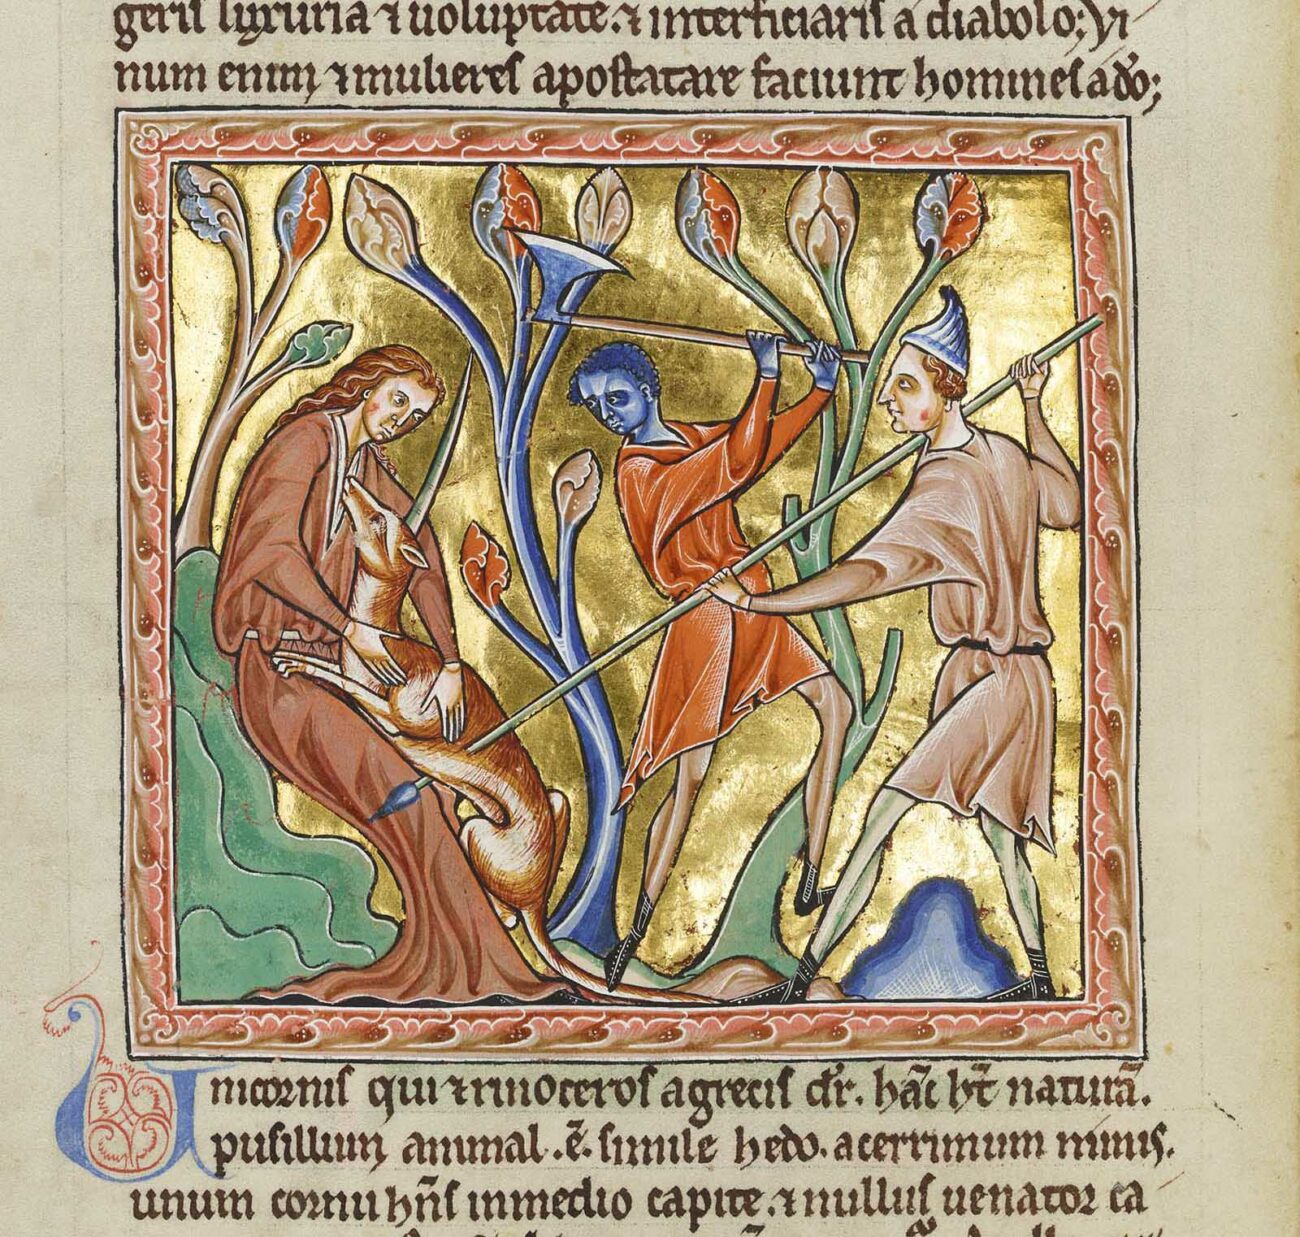 geris luxuria ⁊ uoluptate. ⁊ interficiaris a diabolo; Vi
num enim ⁊ mulieres apostatare faciunt homines a dō;
Unicornis qui ⁊ rinoceros a grecis dr̄. hāc ht̄ naturā.
pusillum animal .ē. simile hedo. acerrimum nimis.
unum cornu hn̄s in medio capite. ⁊ nullus uenator ca